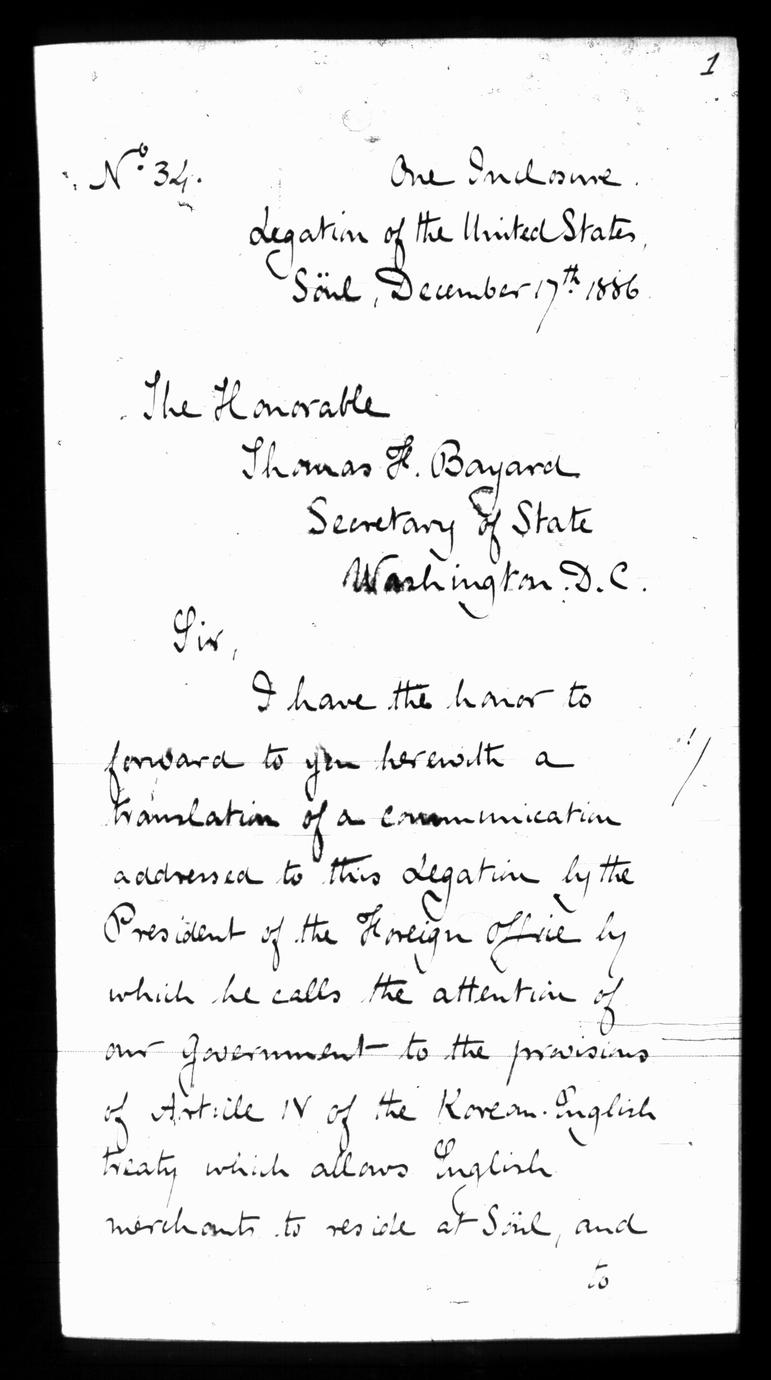 1
No. 34. One Inclosure.
Legation of the United States,
Söul, December 17th 1886.
The Honorable
Thomas F. Bayard
Secretary of State
Washington. D. C.
Sir,
I have the honor to
forward to you herewith a
translation of a communication
addressed to this Legation by the
President of the Foreign Office by
which he calls the attention of
our Government to the provisions
of Article IV of the Korean-English
treaty which allows English
merchants to reside at Söul, and
to